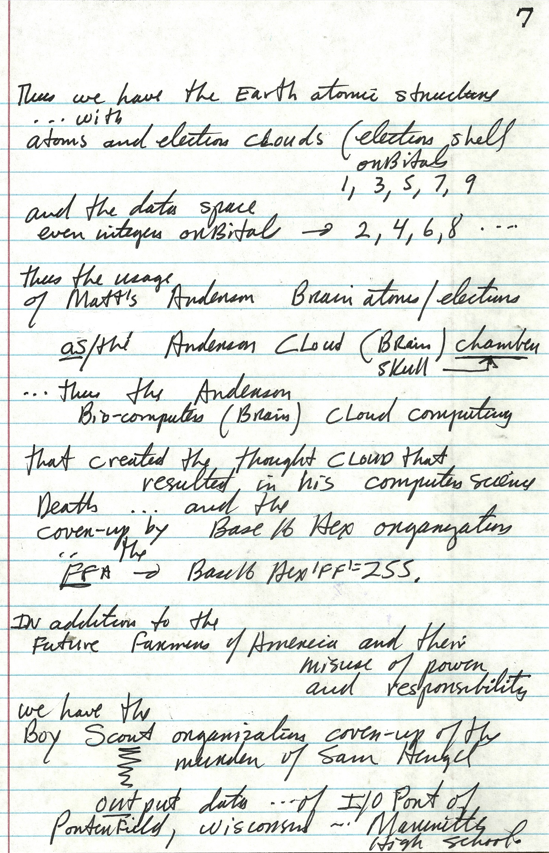 7
Thus we have the Earth atomic structure
... with
atoms and electron clouds (electron shell
onBitals
1, 3, 5, 7, 9
and the data space
even integers onBital → 2, 4, 6, 8 ....
thus the usage
of Matt's Anderson Brain atoms/electrons
as/the Anderson Cloud (BRain) chamber
skull
... thus the Anderson
Bio-computer (Brain) cloud computing
that created the thought cloud that
resulted in his computer science
Death ... and the
cover-up by Base 16 Hex organization
.. the
FFA → Base 16 Hex 'FF'=255.
IN addition to the
Future Farmers of America and their
misuse of power
and responsibility
we have the
Boy Scout organization cover-up of the
murder of Sam Hengel
output data ... of I/O Port of
Porterfield, Wisconsin ... Marinette
High School